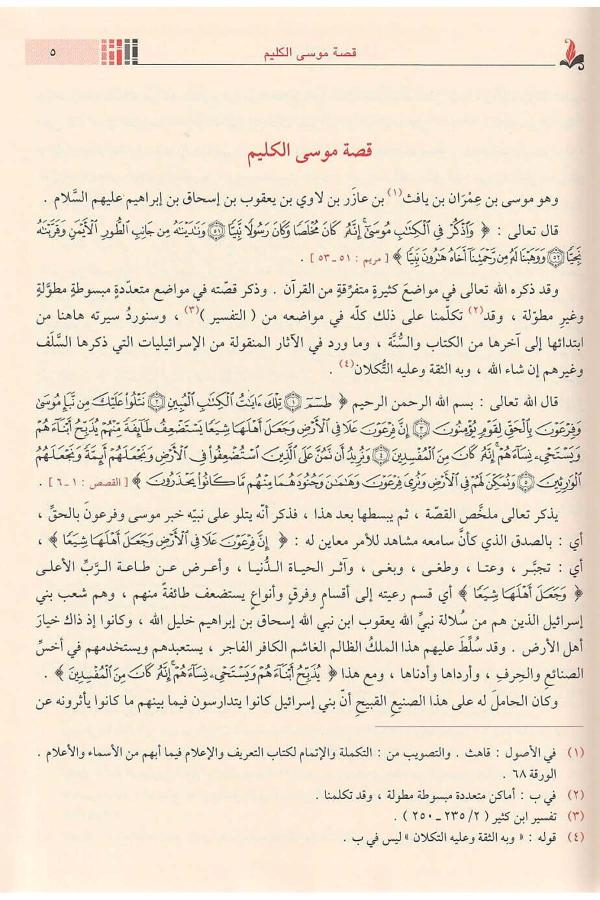 قصة موسى الكليم
٥
قصة موسى الكليم
وهو موسى بن عِمْرَان بن يافث(١) بن عازَر بن لاوي بن يعقوب بن إسحاق بن إبراهيم عليهم السَّلام .
قال تعالى : ﴿ وَٱذْكُرْ فِى ٱلْكِتَٰبِ مُوسَىٰٓ إِنَّهُۥ كَانَ مُخْلَصًا وَكَانَ رَسُولًا نَّبِيًّا ۝٥١ وَنَٰدَيْنَٰهُ مِن جَانِبِ ٱلطُّورِ ٱلْأَيْمَنِ وَقَرَّبْنَٰهُ
نَجِيًّا ۝٥٢ وَوَهَبْنَا لَهُۥ مِن رَّحْمَتِنَآ أَخَاهُ هَٰرُونَ نَبِيًّا ﴾ [ مريم : ٥١ ـ ٥٣ ] .
وقد ذكره الله تعالى في مواضعَ كثيرةٍ متفرّقةٍ من القرآن . وذكر قصّته في مواضع متعدّدةٍ مبسوطةٍ مطوّلةٍ
وغيرِ مطوّلة ، وقد(٢) تكلّمنا على ذلك كلّه في مواضعه من ( التفسير )(٣) ، وسنوردُ سيرته هاهنا من
ابتدائها إلى آخرها من الكتاب والسُّنَّة ، وما ورد في الآثار المنقولة من الإسرائيليات التي ذكرها السَّلَف
وغيرهم إن شاء الله ، وبه الثقة وعليه التُّكلان(٤) .
قال الله تعالى : بسم الله الرحمن الرحيم ﴿ طسٓمٓ ۝١ تِلْكَ ءَايَٰتُ ٱلْكِتَٰبِ ٱلْمُبِينِ ۝٢ نَتْلُوا۟ عَلَيْكَ مِن نَّبَإِ مُوسَىٰ
وَفِرْعَوْنَ بِٱلْحَقِّ لِقَوْمٍ يُؤْمِنُونَ ۝٣ إِنَّ فِرْعَوْنَ عَلَا فِى ٱلْأَرْضِ وَجَعَلَ أَهْلَهَا شِيَعًا يَسْتَضْعِفُ طَآئِفَةً مِّنْهُمْ يُذَبِّحُ أَبْنَآءَهُمْ
وَيَسْتَحْىِۦ نِسَآءَهُمْ إِنَّهُۥ كَانَ مِنَ ٱلْمُفْسِدِينَ ۝٤ وَنُرِيدُ أَن نَّمُنَّ عَلَى ٱلَّذِينَ ٱسْتُضْعِفُوا۟ فِى ٱلْأَرْضِ وَنَجْعَلَهُمْ أَئِمَّةً وَنَجْعَلَهُمُ
ٱلْوَٰرِثِينَ ۝٥ وَنُمَكِّنَ لَهُمْ فِى ٱلْأَرْضِ وَنُرِىَ فِرْعَوْنَ وَهَٰمَٰنَ وَجُنُودَهُمَا مِنْهُم مَّا كَانُوا۟ يَحْذَرُونَ ﴾ [ القصص : ١ ـ ٦ ] .
يذكر تعالى ملخَّص القصّة ، ثم يبسطها بعد هذا ، فذكر أنّه يتلو على نبيّه خبر موسى وفرعونَ بالحقّ ،
أي : بالصدق الذي كأنَّ سامعه مشاهد للأمر معاين له : ﴿ إِنَّ فِرْعَوْنَ عَلَا فِى ٱلْأَرْضِ وَجَعَلَ أَهْلَهَا شِيَعًا ﴾ ،
أي : تجبَّر ، وعتا ، وطغى ، وبغى ، وآثر الحياة الدُّنيا ، وأعرض عن طاعة الرَّبِّ الأعلى
﴿ وَجَعَلَ أَهْلَهَا شِيَعًا ﴾ أي قسم رعيته إلى أقسام وفرق وأنواعٍ يستضعف طائفةً منهم ، وهم شعب بني
إسرائيل الذين هم من سُلالة نبيِّ الله يعقوب ابن نبي الله إسحاق بن إبراهيم خليل الله ، وكانوا إذ ذاك خيارَ
أهل الأرض . وقد سُلِّطَ عليهم هذا الملكُ الظالم الغاشم الكافر الفاجر ، يستعبدهم ويستخدمهم في أخسِّ
الصنائع والحِرف ، وأرداها وأدناها ، ومع هذا ﴿ يُذَبِّحُ أَبْنَآءَهُمْ وَيَسْتَحْىِۦ نِسَآءَهُمْ إِنَّهُۥ كَانَ مِنَ ٱلْمُفْسِدِينَ ﴾ .
وكان الحاملَ له على هذا الصنيعِ القبيحِ أنّ بني إسرائيل كانوا يتدارسون فيما بينهم ما كانوا يأثرونه عن
(١) في الأصول : قاهث . والتصويب من : التكملة والإتمام لكتاب التعريف والإعلام فيما أبهم من الأسماء والأعلام .
الورقة ٦٨ .
(٢) في ب : أماكن متعددة مبسوطة مطولة ، وقد تكلمنا .
(٣) تفسير ابن كثير ( ٢/ ٢٣٥ ـ ٢٥٠ ) .
(٤) قوله : « وبه الثقة وعليه التكلان » ليس في ب .